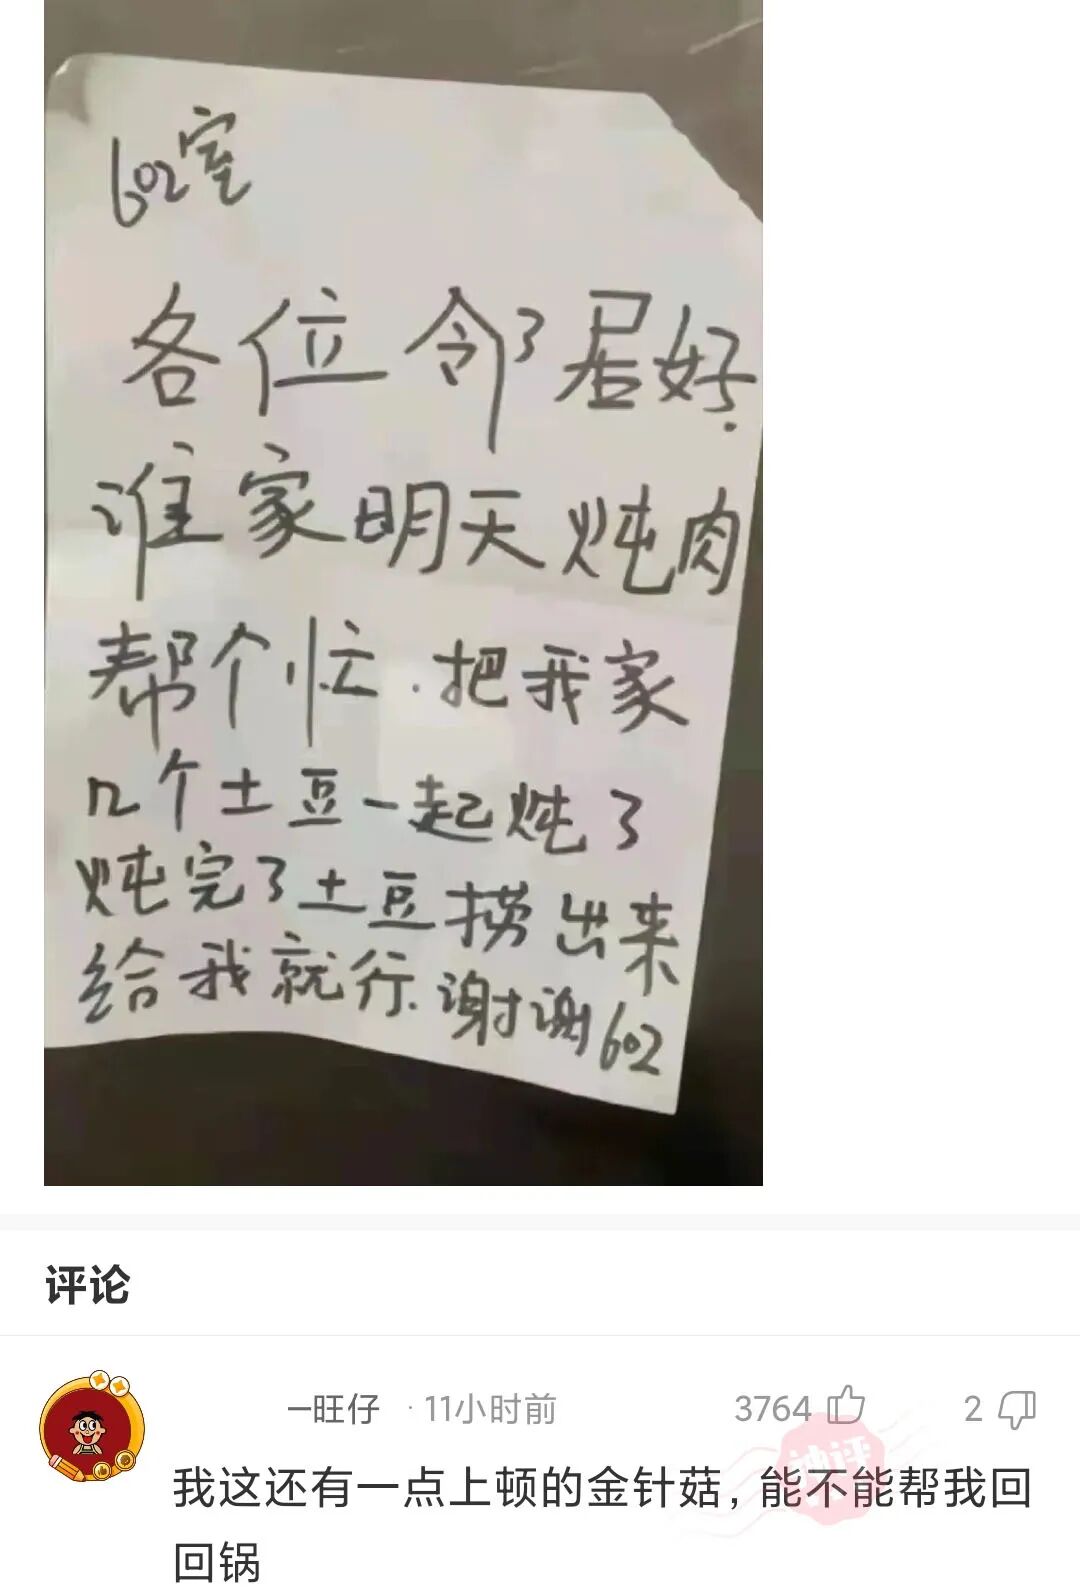 602室
各位邻居好.
谁家明天炖肉
帮个忙.把我家
几个土豆一起炖了
炖完了土豆捞出来
给我就行.谢谢602
评论
一旺仔 · 11小时前 3764 2
神评
我这还有一点上顿的金针菇，能不能帮我回
回锅